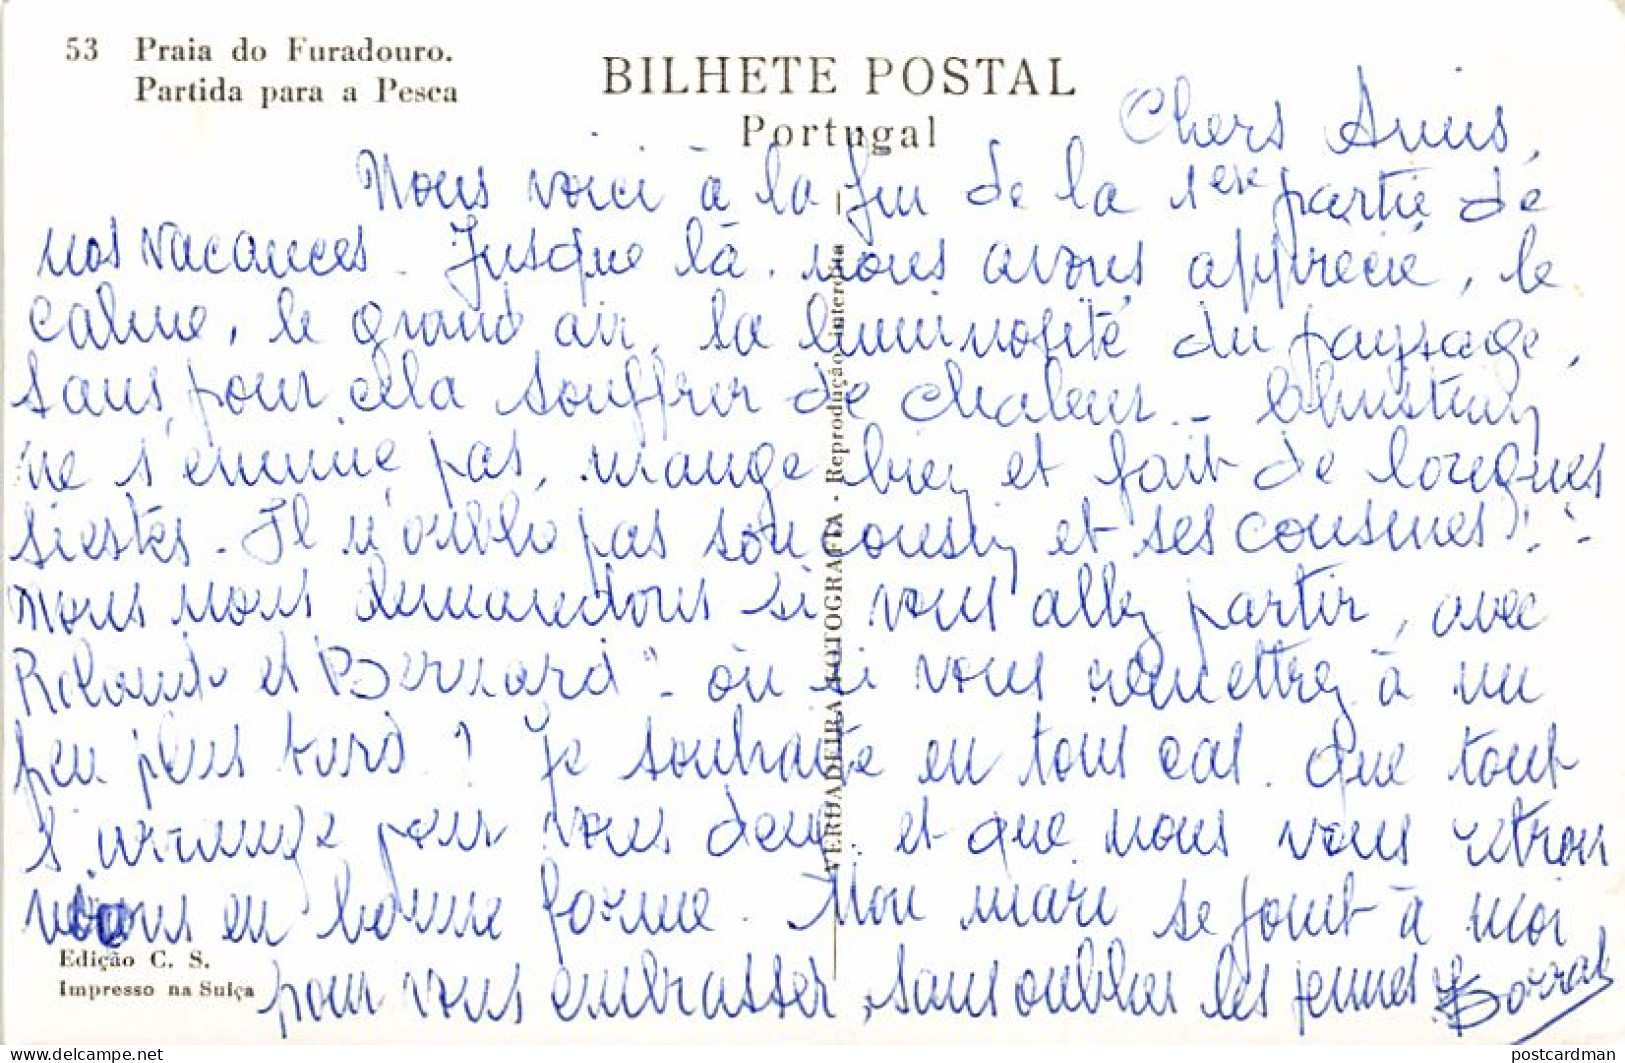 53 Praia do Furadouro.
Partida para a Pesca
BILHETE POSTAL
Portugal
Chers Amis,
Nous voici à la fin de la 1ere partie de
nos vacances. Jusque là, nous avons apprécié, le
calme, le grand air, la luminosité du paysage,
sans pour cela souffrir de chaleur - Christian
ne s'ennuie pas, mange bien et fait de longues
siestes - Il n'oublie pas son cousin et ses cousines !! -
Nous nous demandons si vous allez partir, avec
Rolande et Bernard" - ou si vous remettrez à un
peu plus tard ? Je souhaite en tous cas que tout
s'arrange pour vous deux et que nous vous retrou
verons en bonne forme. Mon mari se joint à moi
pour vous embrasser, sans oublier les jeunes
Edição C. S.
Impresso na Suíça
VERDADEIRA FOTOGRAFIA - Reprodução interdita
postcardman
https://www.delcampe.net